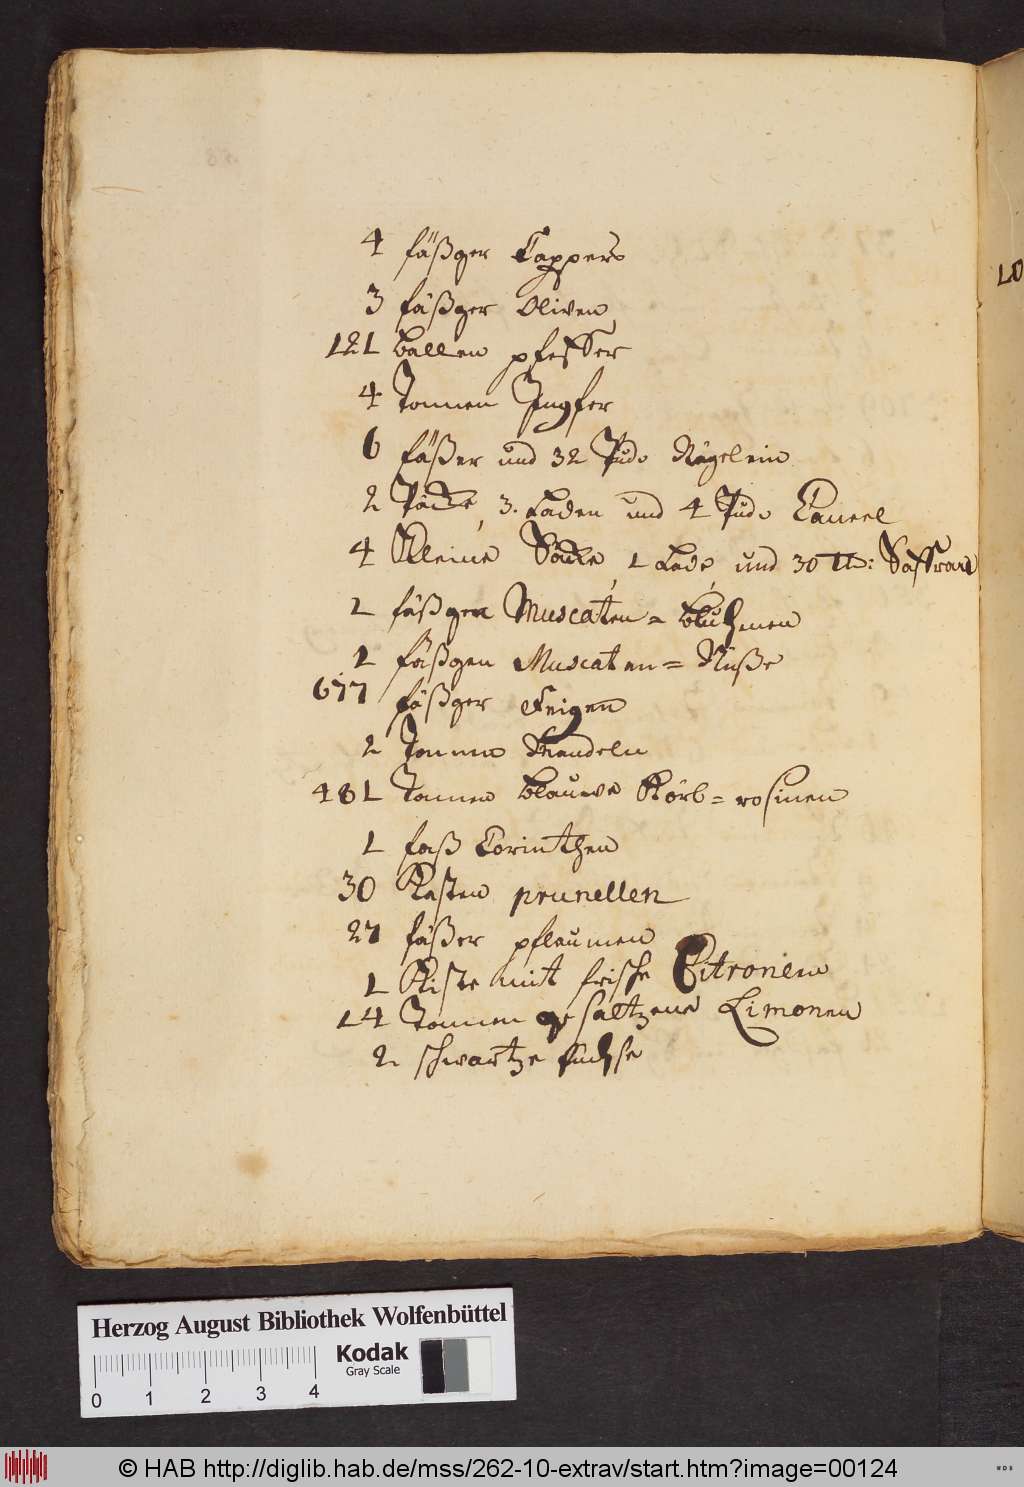 4 fäßger Cappers
3 fäßger Oliven
121 ballen pfeffer
4 Tonnen Ingfer
6 fäßer und 32 Pud Nägelein
2 Päcke, 3. Laden und 4 Pud Caneel
4 Kleine Säcke, 1 Lade, und 30 ℔: Saffran
1 fäßgen Muscaten=bluhmen
1 fäßgen Muscaten=Nüße
677 fäßger Feigen
2 Tonnen Mandeln
481 Tonnen blauwe Körb=rosinen
1 faß Corinthen
30 Kasten prunellen
27 fäßer pflaumen
1 Kiste mit frische Citronen
14 Tonnen gesaltzene Limonen
2 schwartze füchse
LO
Herzog August Bibliothek Wolfenbüttel
Kodak
Gray Scale
0 1 2 3 4
© HAB http://diglib.hab.de/mss/262-10-extrav/start.htm?image=00124